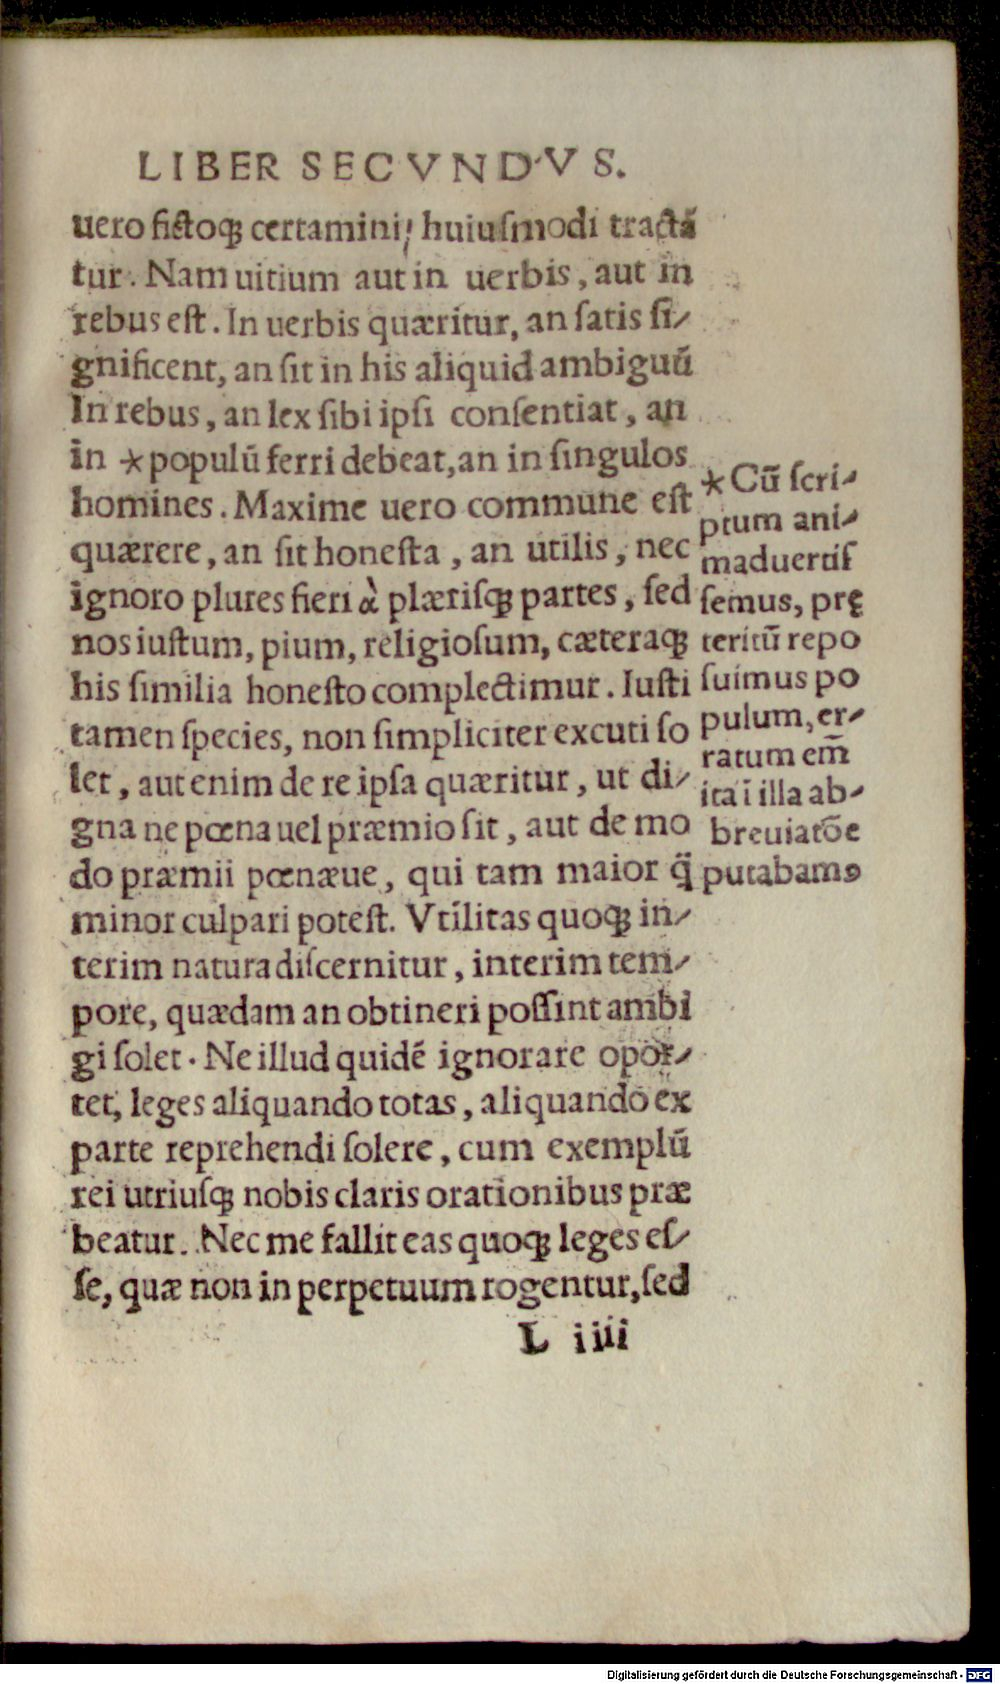 LIBER SECVNDVS.
uero fictoqꝫ certamini, huiuſmodi tractã
tur. Nam uitium aut in uerbis, aut in
rebus eſt. In uerbis quæritur, an ſatis ſi⸗
gnificent, an ſit in his aliquid ambiguũ
In rebus, an lex ſibi ipſi conſentiat, an
in *populũ ferri debeat, an in ſingulos
homines. Maxime uero commune eſt
quærere, an ſit honeſta, an utilis, nec
ignoro plures fieri à plæriſqꝫ partes, ſed
nos iuſtum, pium, religioſum, cæteraqꝫ
his ſimilia honeſto complectimur. Iuſti
tamen ſpecies, non ſimpliciter excuti ſo
let, aut enim de re ipſa quæritur, ut di⸗
gna ne pœna uel præmio ſit, aut de mo
do præmii pœnæue, qui tam maior q̃
minor culpari poteſt. Vtilitas quoqꝫ in⸗
terim natura diſcernitur, interim tem⸗
pore, quædam an obtineri poſſint ambi
gi ſolet. Ne illud quidẽ ignorare opor⸗
tet, leges aliquando totas, aliquando ex
parte reprehendi ſolere, cum exemplũ
rei utriuſqꝫ nobis claris orationibus præ
beatur. Nec me fallit eas quoqꝫ leges eſ⸗
ſe, quæ non in perpetuum rogentur, ſed
L iiii
* Cũ ſcri⸗
ptum ani⸗
maduertiſ
ſemus, prę
teritũ repo
ſuimus po
pulum, er⸗
ratum em̃
ita ĩ illa ab⸗
breuiatõe
putabamꝰ
Digitalisierung gefördert durch die Deutsche Forschungsgemeinschaft - DFG